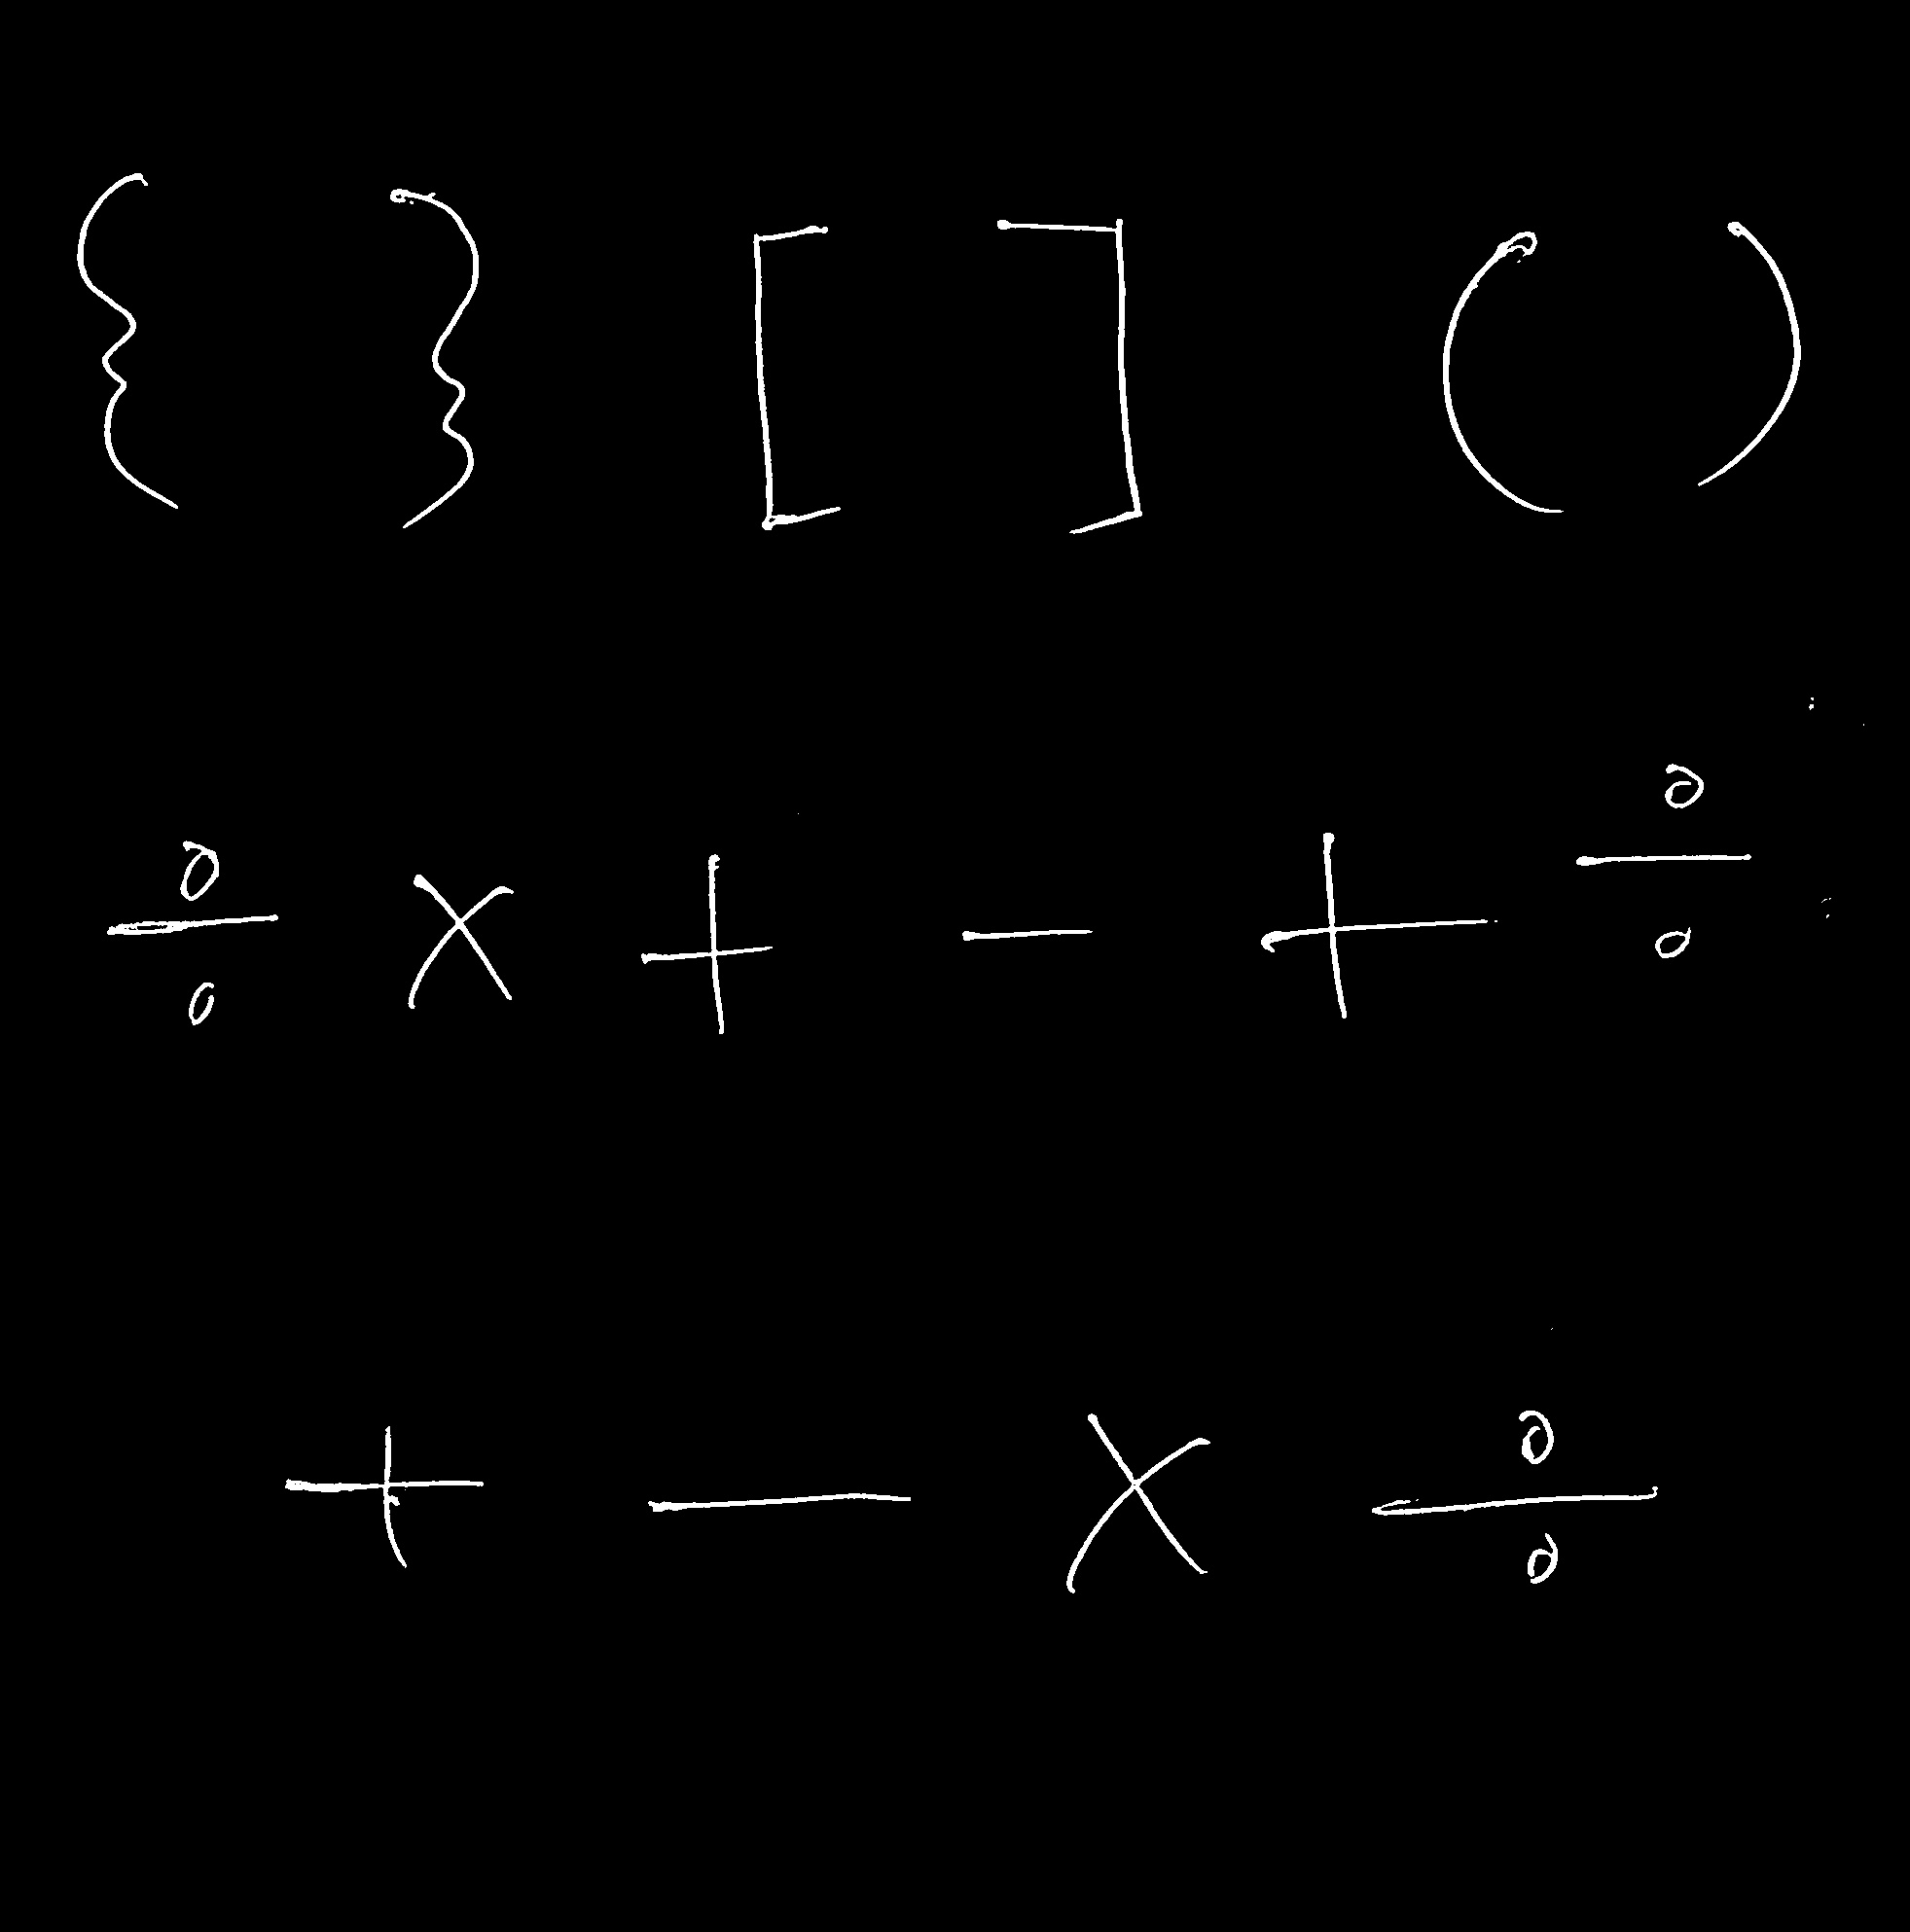 { } [ ] ( )
÷ × + − + ÷
+ − × ÷